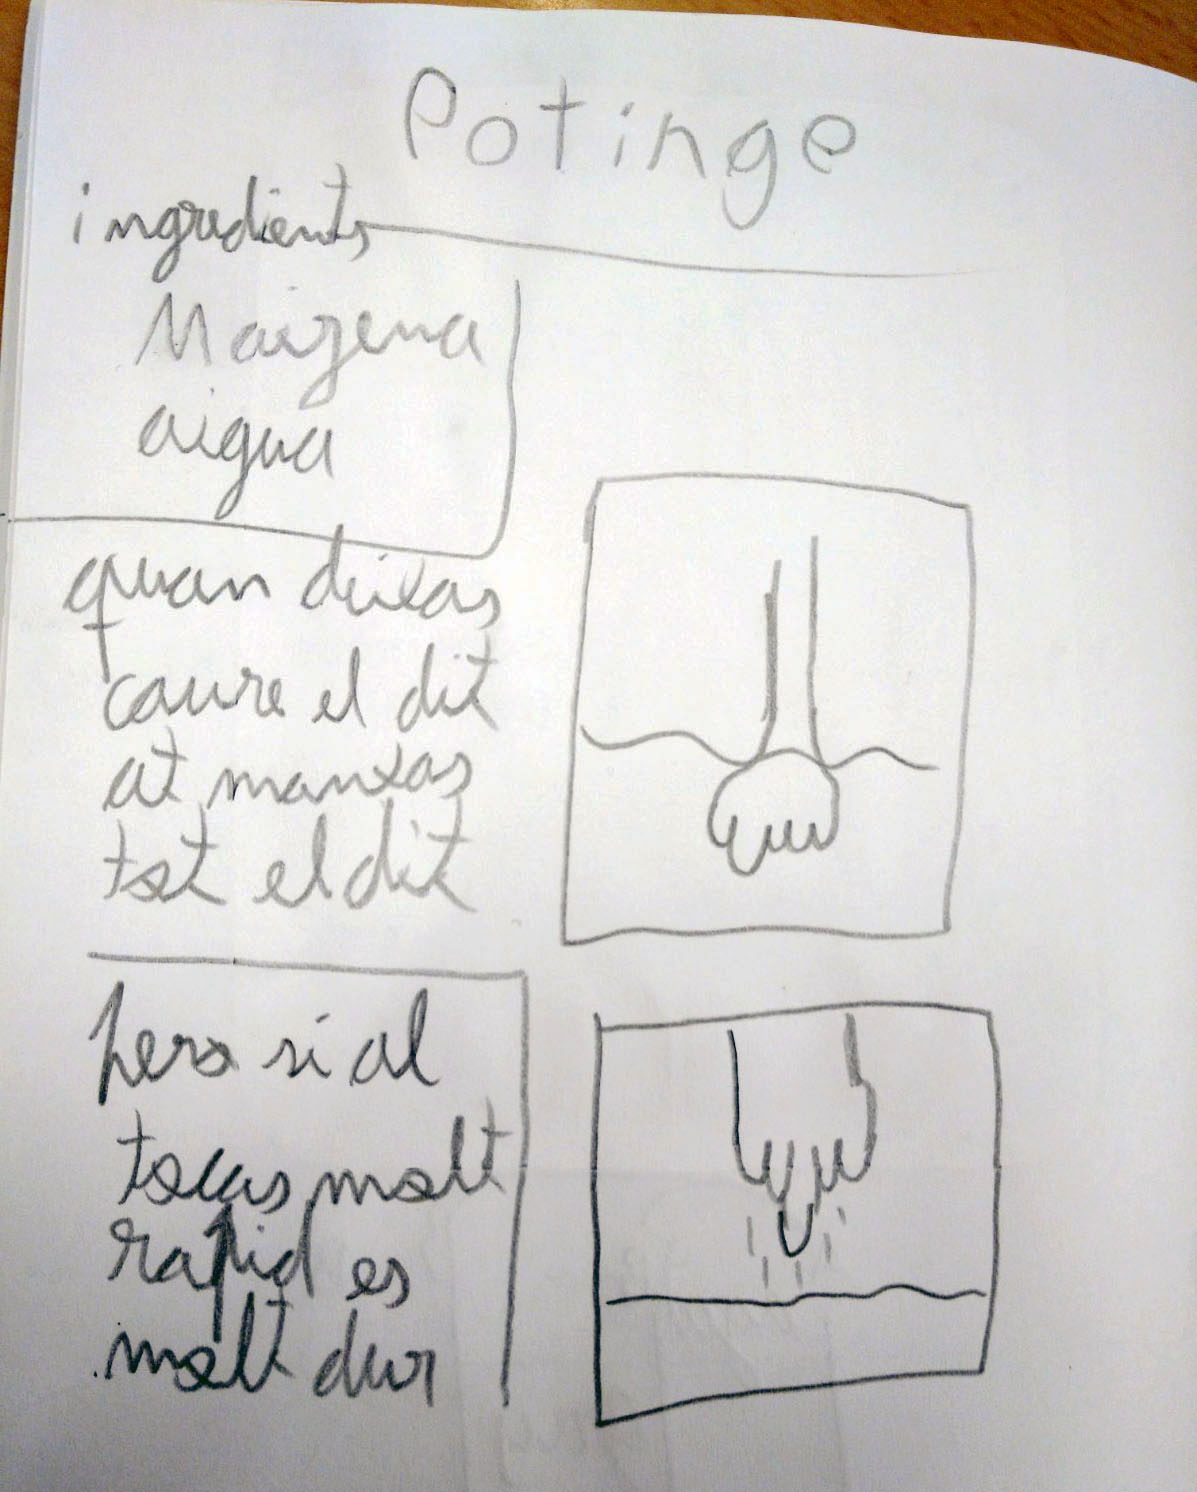 Potinge
ingredients
Maizena
aigua
quan deixas
caure el dit
at manxas
tot el dit
pero si al
tocas molt
rapid es
molt dur